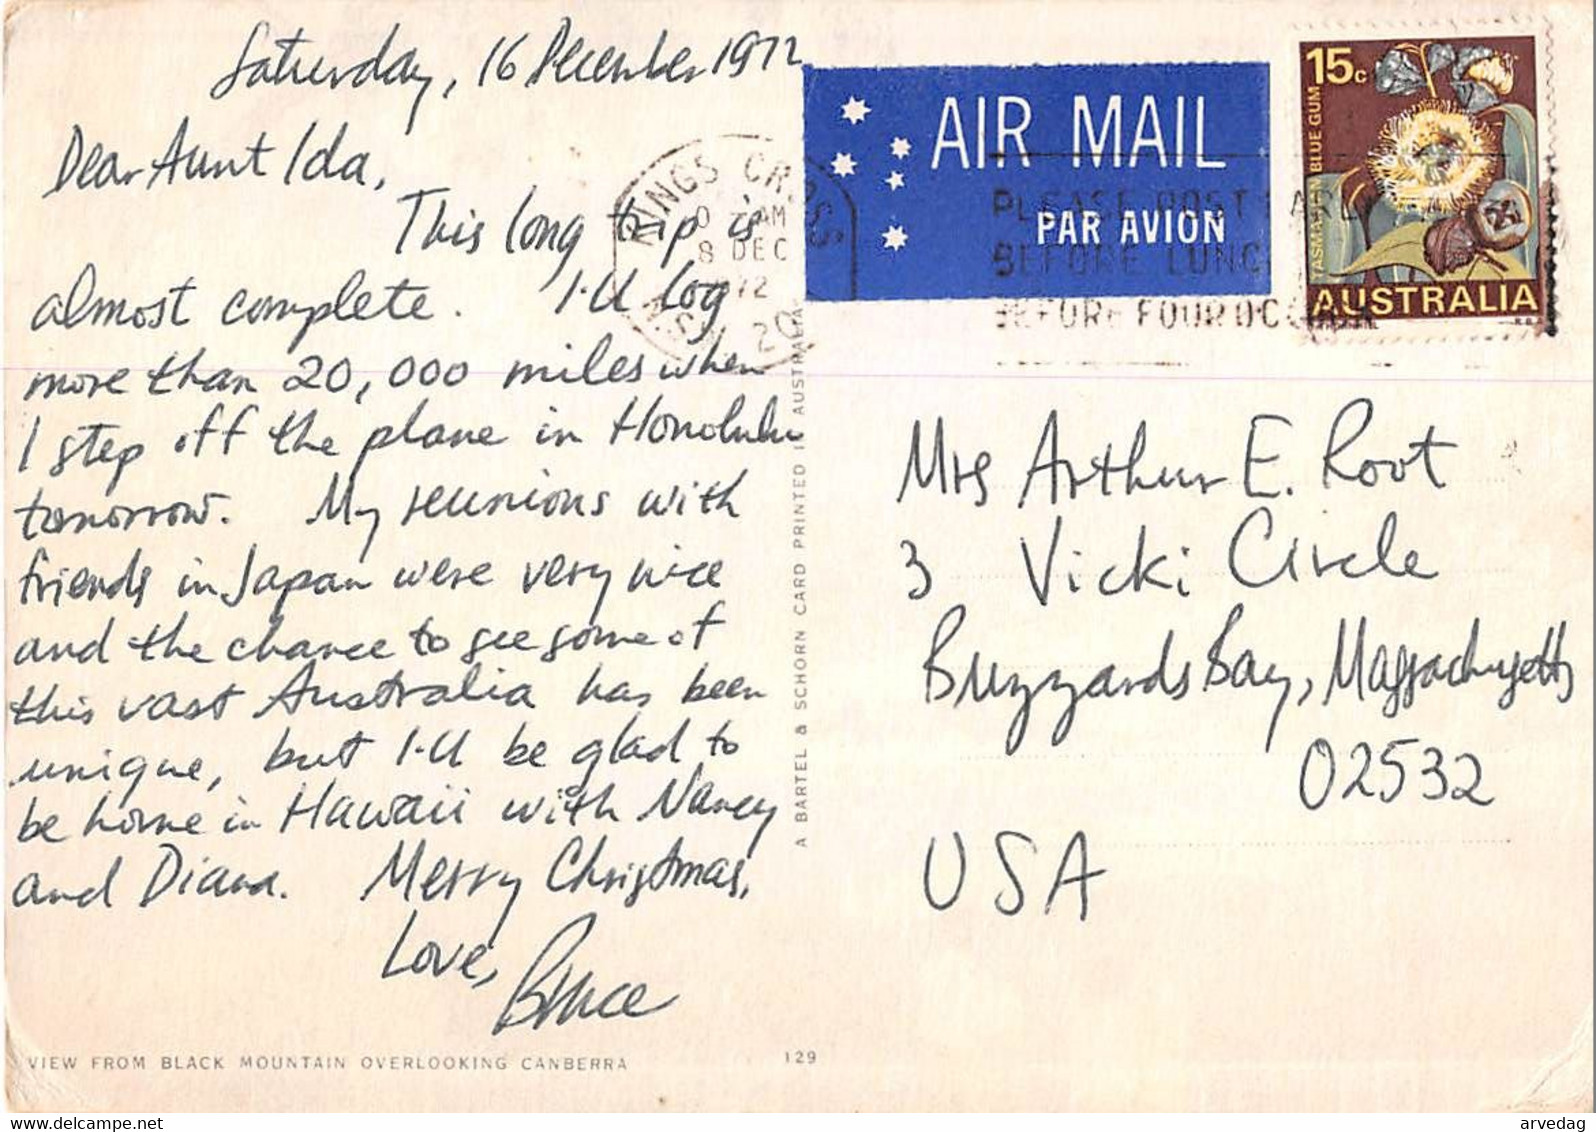 Saturday, 16 December 1972
Dear Aunt Ida,
This long trip is
almost complete. I'll log
more than 20,000 miles when
I step off the plane in Honolulu
tomorrow. My reunions with
friends in Japan were very nice
and the chance to see some of
this vast Australia has been
unique, but I'll be glad to
be home in Hawaii with Nancy
and Diana. Merry Christmas,
Love,
Bruce
VIEW FROM BLACK MOUNTAIN OVERLOOKING CANBERRA
129
A BARTEL & SCHORN CARD PRINTED I AUSTRALIA
KINGS CROSS
AM
8 DEC
72
20
AIR MAIL
PAR AVION
PLEASE POST EARLY
BEFORE LUNC
BEFORE FOUR O'C
15c
TASMANIAN BLUE GUM
AUSTRALIA
Mrs Arthur E. Root
3 Vicki Circle
Buzzards Bay, Massachusetts
02532
USA
delcampe.net
arvedag